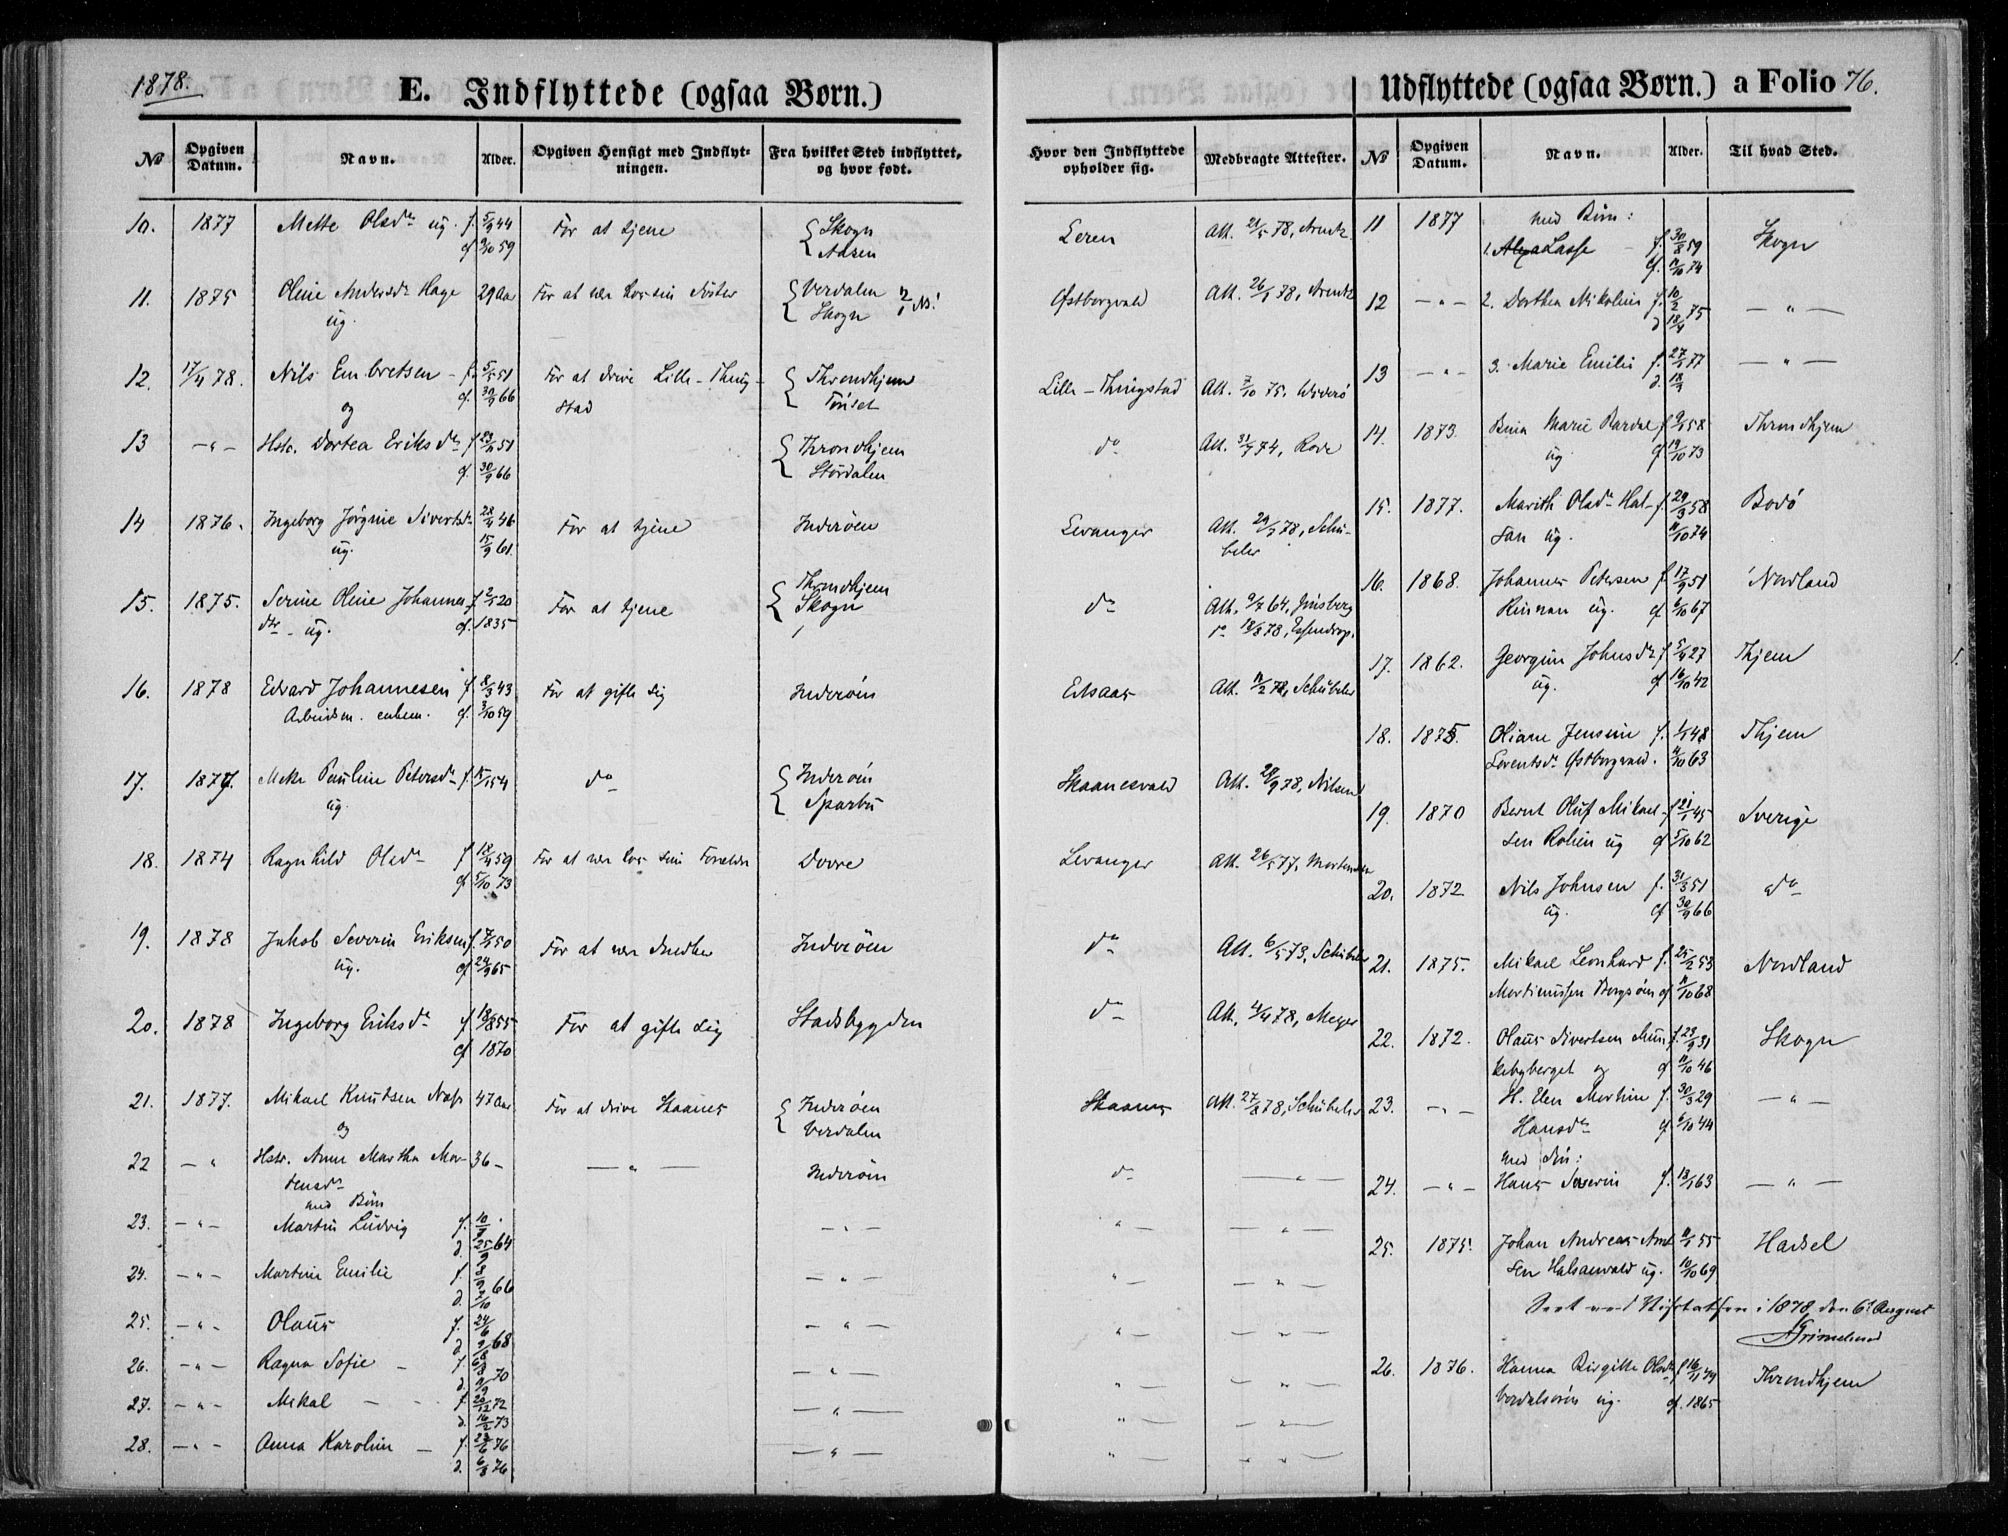 1878.
E. Indflyttede (ogsaa Børn.)
№ Opgiven Datum. Navn. Alder. Opgiven Hensigt med Indflyt-ningen. Fra hvilket Sted indflyttet, og hvor født.
Hvor den Indflyttede opholder sig. Medbragte Attester.
10. 1877 Mette Olsdr ug. f. 5/9 44 For at tjene Skogn Leren Att. 21/5 78, Arentz
g. 9/10 59 Aasen
11. 1875 Oline Andersdr Hage 29 Aar For at være hos sin Søster Verdalen Østborgvald Att. 26/1 78, Arentz
ug. Skogn
12. 17/4 78. Nils Embretsen f. 5/5 51 For at drive Lille-Thing- Throndhjem Lille-Thingstad Att. 7/10 75, Widerö
og g. 30/9 66 stad Tönset
13 -"- Hstr. Dortea Eriksdr f. 23/11 51 Throndhjem do Att. 31/7 74, Rode
g. 30/9 66 Stördalen
14 1876. Ingeborg Jörgine Sivertsdr 28/4 46 For at tjene Inderøen Levanger Att. 29/3 78, Schü-
ug. 15/9 61. beler
15. 1875. Serine Oline Johannes- f. 2/5 20 For at tjene Throndhjem Skogn do Att. 9/7 64, Ginsberg
dtr. ug. g. 1835 do 18/3 78, Essendrop.
16. 1878 Edvard Johannesen f. 8/3 43 For at gifte sig Inderøen Eklsaas Att. 11/2 78, Schübeler
Arbeidsm. enkem. g. 3/10 59
17. 1877. Mette Pauline Petersdr f. 15/1 54 do Inderøen Skaanesvald Att. 28/9 78, Nilsen
ug. Sparbu
18. 1874 Ragnhild Olsdr f. 18/4 59 For at være hos sine Forældre Dovre Levanger Att. 26/5 77, Mortensen
g. 5/10 73
19. 1878 Jakob Severin Eriksen f. 7/5 50 For at være Snedker Inderøen do Att. 6/5 73, Schübeler
ug. g. 24/9 65
20. 1878 Ingeborg Eriksdr f. 18/8 55 For at gifte sig Stadsbygden do Att. 4/4 78, Meyer
g. 1870
21. 1877. Mikael Knudsen Næss 47 Aar For at drive Skaanes Inderøen Skaanes Att. 27/8 78, Schübeler
og Verdalen
22 -" Hstr. Anne Martha Mor- 36 - -"- Inderøen do -"-
tensdr
med Børn
23. -"- Martin Ludvig f. 10/8 -"- " -"-
d. 25/9 64
24. -"- Martine Emilie f. 8/9 -"- " -"-
d. 7/10 66
25. -"- Olaus f. 24/6 -"- " -"-
d. 9/8 68
26. -"- Ragna Sofie - f. 6/8 -"- " -"-
d. 11/9 70
27. -"- Mikal - f. 22/12 72 -"- " -"-
d. 16/2 73
28. -"- Anna Karoline - f. 27/6 76 -"- " -"-
d. 6/8 76
Udflyttede (ogsaa Børn.) a Folio 76.
№ Opgiven Datum. Navn. Alder. Til hvad Sted.
11 1877 med Børn:
1. Lasse - f. 30/8 59 Skogn
g. 11/10 74
12 -"- 2. Dorthea Nikoline f. 10/2 75 -"-
d. 18/4
13 -"- 3. Marie Emilie f. 27/2 77 -"-
d. 18/3
14. 1873. Bina Marie Bardal f. 9/5 58 Throndhjem
ug g. 19/10 73
15. 1877. Marith Olsdr Hal- f. 29/3 58 Bodö
san ug. 11/10 74
16. 1868. Johannes Petersen f. 17/9 51 Nordland
Rinnan ug. g. 6/10 67
17. 1862. Georgine Johnsdr f. 5/4 27 Thjem
ug. g. 16/10 42
18. 1875. Oliane Jensine f. 1/1 48 Thjem
Lorentsdr Østborgvald. 4/10 63
19. 1870 Bernt Oluf Mikael- f. 21/1 45 Sverige
sen Rolien ug g. 5/10 62
20. 1872 Nils Johnsen f. 31/3 51 do
ug. g. 30/9 66
21. 1875. Mikael Leonhard f. 25/2 53 Nordland
Martinussen Borgsöen g. 11/10 68
22. 1872. Olaus Sivertsen Mun- f. 23/9 31 Skogn
kebyberget og g. 11/10 46
23. -"- H. Elen Marthine f. 30/3 29 -"-
Hansdr g. 6/10 44
med Sön:
24. -"- Hans Severin f. 13/1 63 -"-
25. 1875. Johan Andreas Arnt- 11/1 55 Hadsel
sen Halsanvald ug. 10/10 69
Seet ved Visitatsen i 1878 den 6te August
Grimelund
26. 1876. Hanna Birgitte Olsdr f. 16/1 49 Throndhjem
Verdalsøren ug. g. 1865